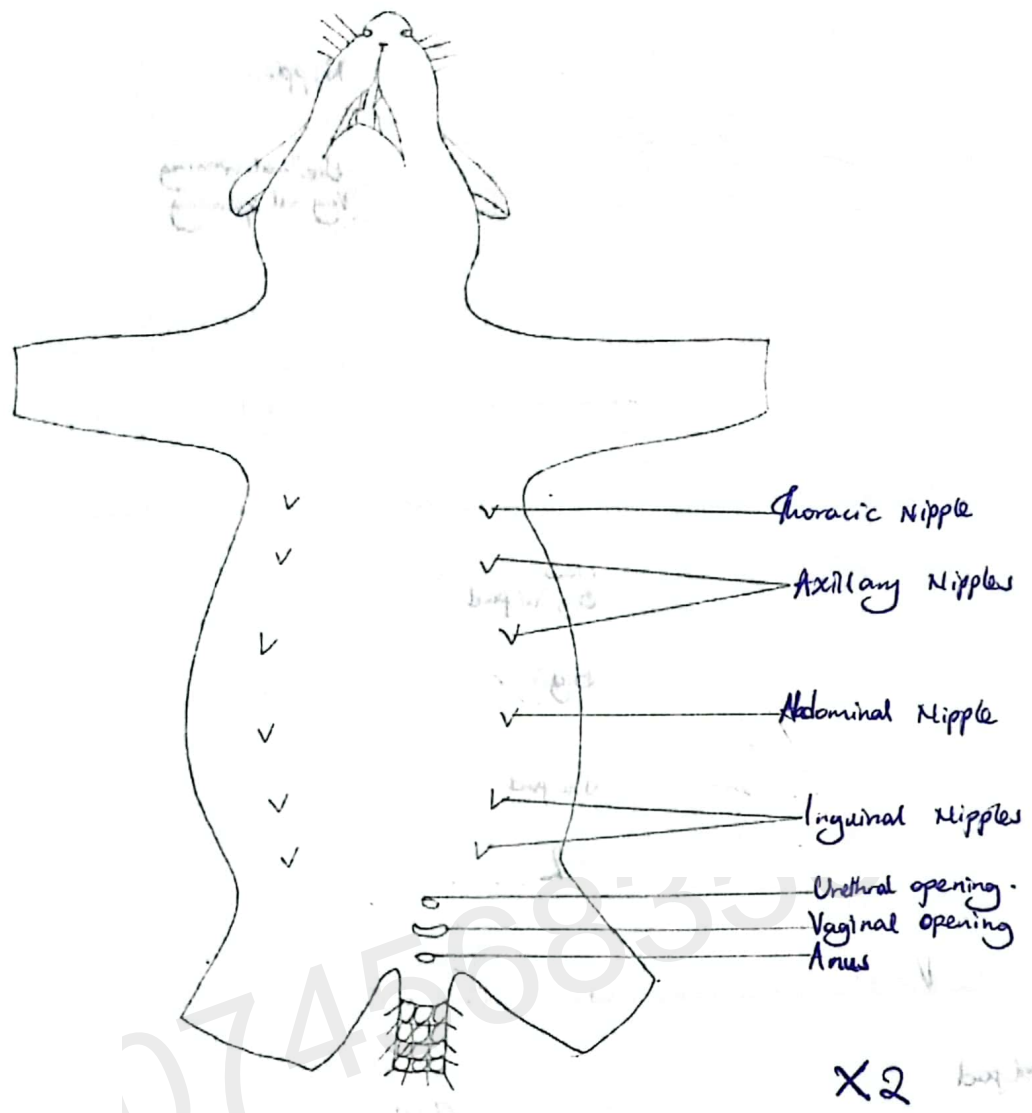 Thoracic Nipple
Axillary Nipples
Abdominal Nipple
Inguinal Nipples
Urethral opening.
Vaginal opening
Anus
X2